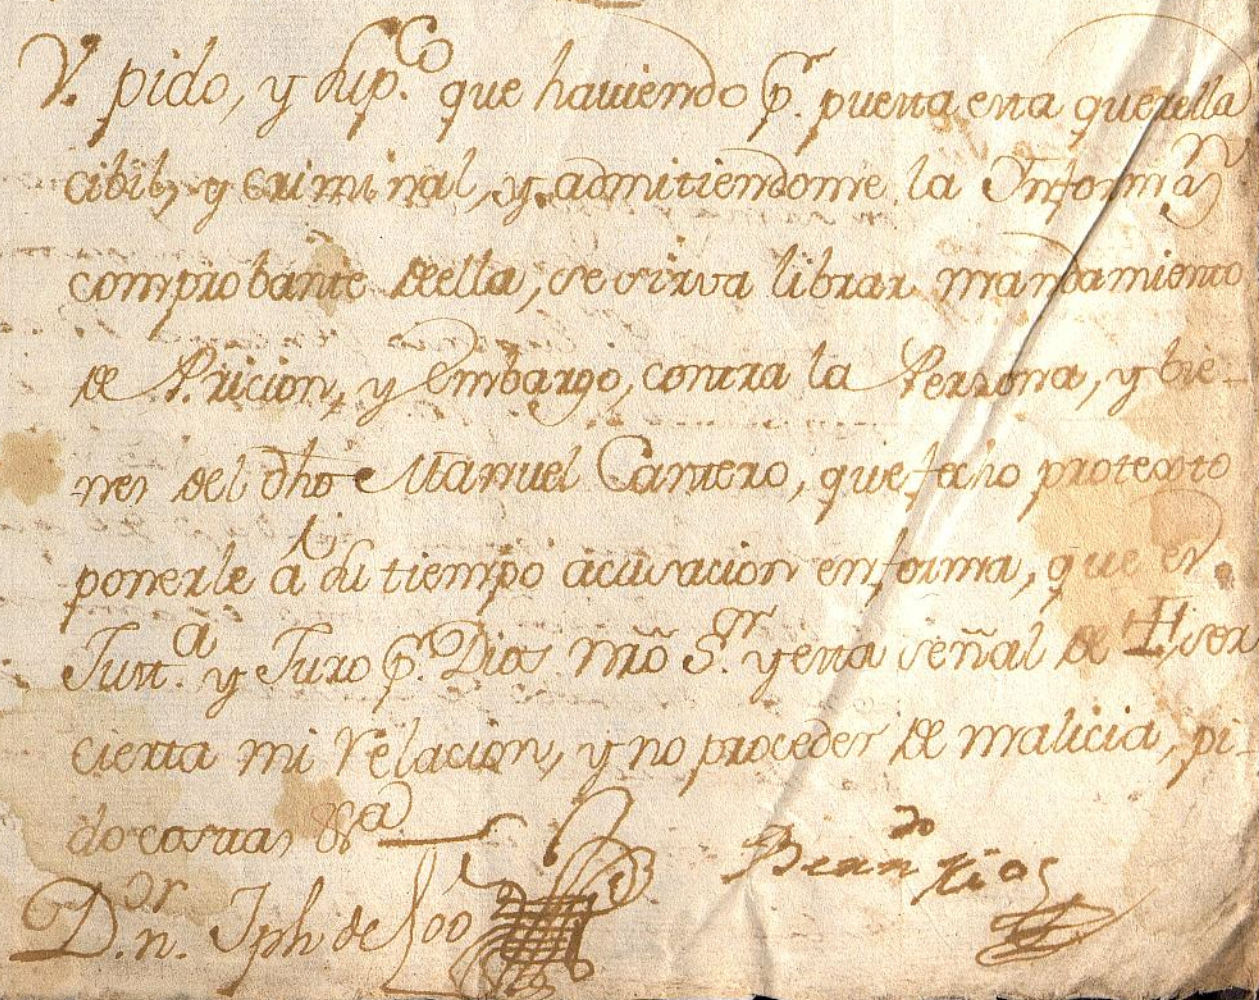 V. pido, y Sup.co que haviendo p.r puesta esta querella
cibil, y criminal, y admitiendome la Informa.n
comprobante deella, se sirva librar mandamiento
de Pricion, y embargo, contra la Persona, y bie-
nes del dho Manuel Cantero, que fecho protexto
ponerle â su tiempo acusacion enforma, que es
Just.a y Juro p.r Dios nrõ S.r y esta señal de + ser
cierta mi relacion, y no proceder de malicia, pi-
do costas &.a
D.or n. Jph de Bern.do Rios